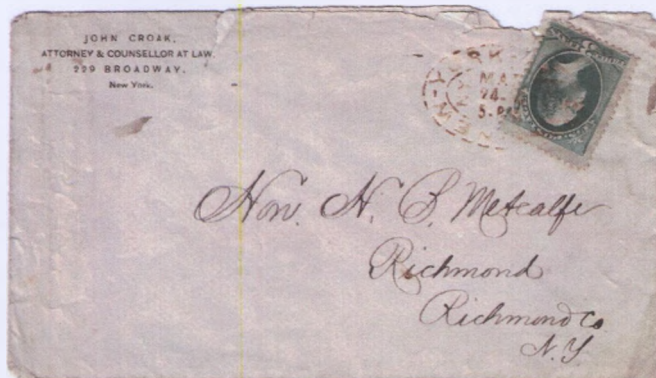 JOHN CROAK.
ATTORNEY & COUNSELLOR AT LAW.
229 BROADWAY.
New York.
MA
24.
5. P
Hon. H. B. Metcalfe
Richmond
Richmond Co
N.Y